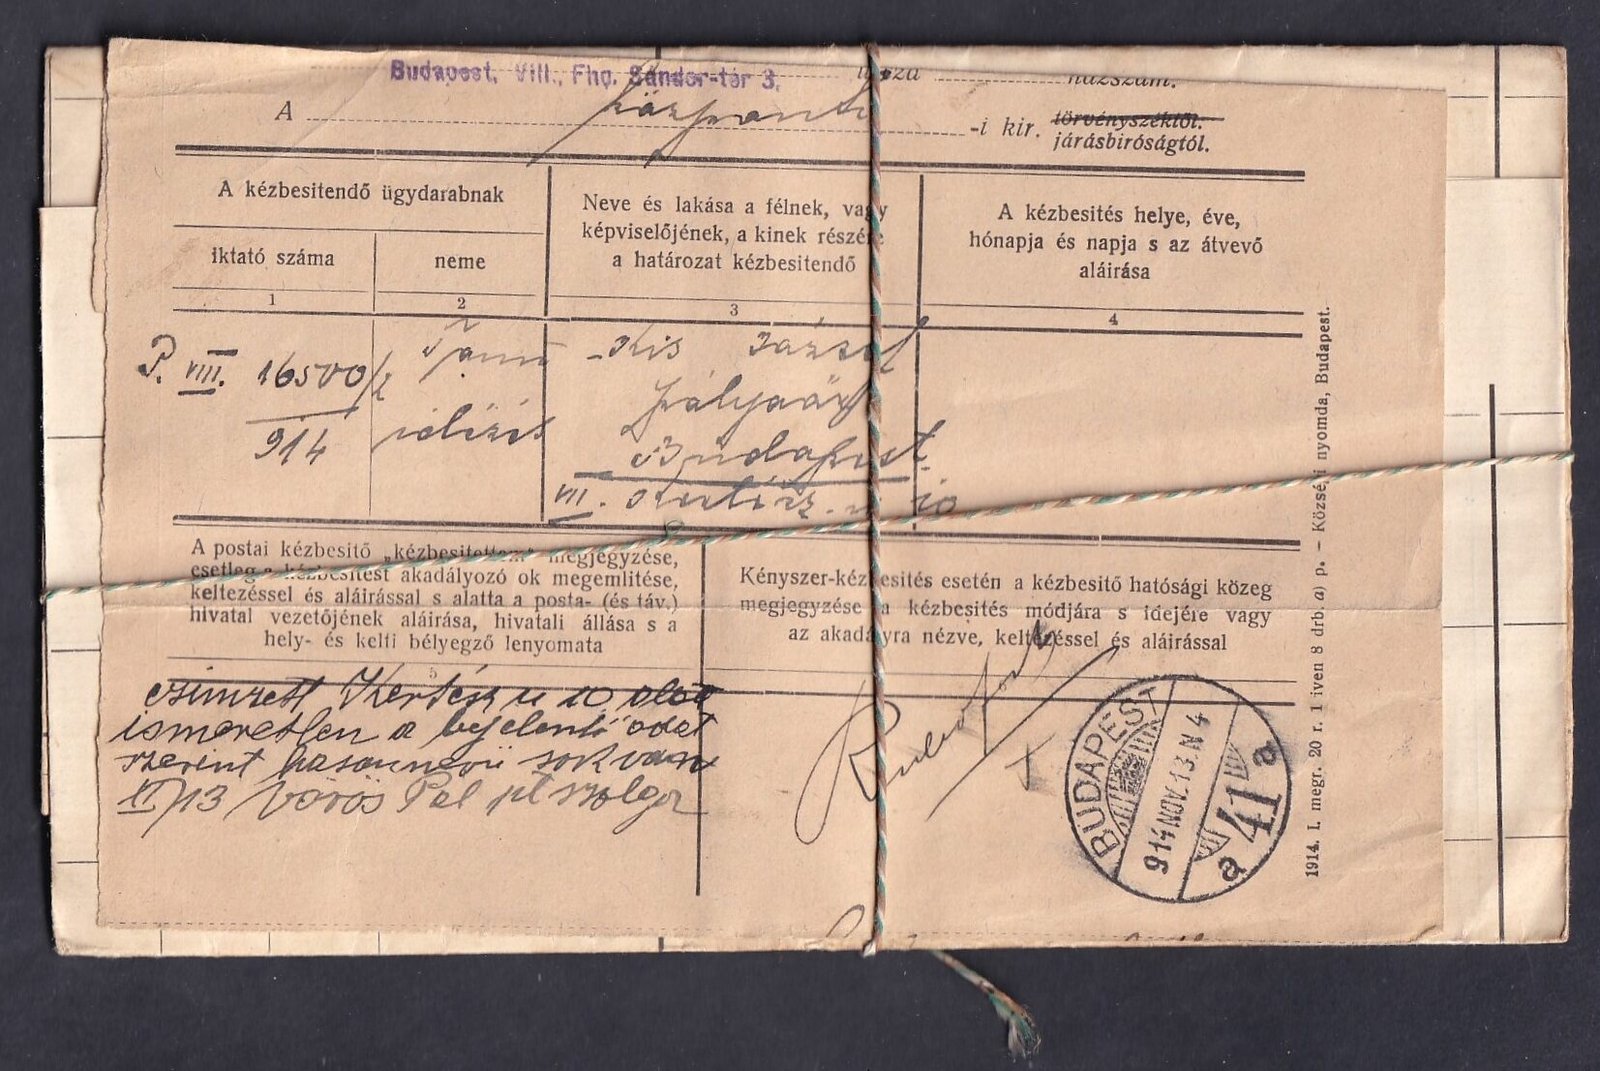 Budapest, VIII., Fhg. Sándor-tér 3.
házszám.
A központi -i kir. törvényszéktől.
járásbiróságtól.
A kézbesitendő ügydarabnak
Iktató száma
neme
Neve és lakása a félnek, vagy
képviselőjének, a kinek részére
a határozat kézbesitendő
A kézbesités helye, éve,
hónapja és napja s az átvevő
aláirása
1
2
3
4
P. VIII. 16500/2
914
Tanu
idézés
Kis József
pályaőr
Budapest
VII. Kertész u 10
A postai kézbesitő „kézbesitettem" megjegyzése,
esetleg a kézbesitést akadályozó ok megemlitése,
keltezéssel és aláirással s alatta a posta- (és táv.)
hivatal vezetőjének aláirása, hivatali állása s a
hely- és kelti bélyegző lenyomata
5
Kényszer-kézbesités esetén a kézbesitő hatósági közeg
megjegyzése a kézbesités módjára s idejére vagy
az akadályra nézve, keltezéssel és aláirással
czimzett Kertész u 10 alatt
ismeretlen a bejelentő adat
szerint hasonnevü sok van
XI/13 Vörös Pál pt szolga
BUDAPEST
914 NOV. 13. N 4
a 41 a
1914. I. megr. 20 r. 1 iven 8 drb. a) p. – Községi nyomda, Budapest.